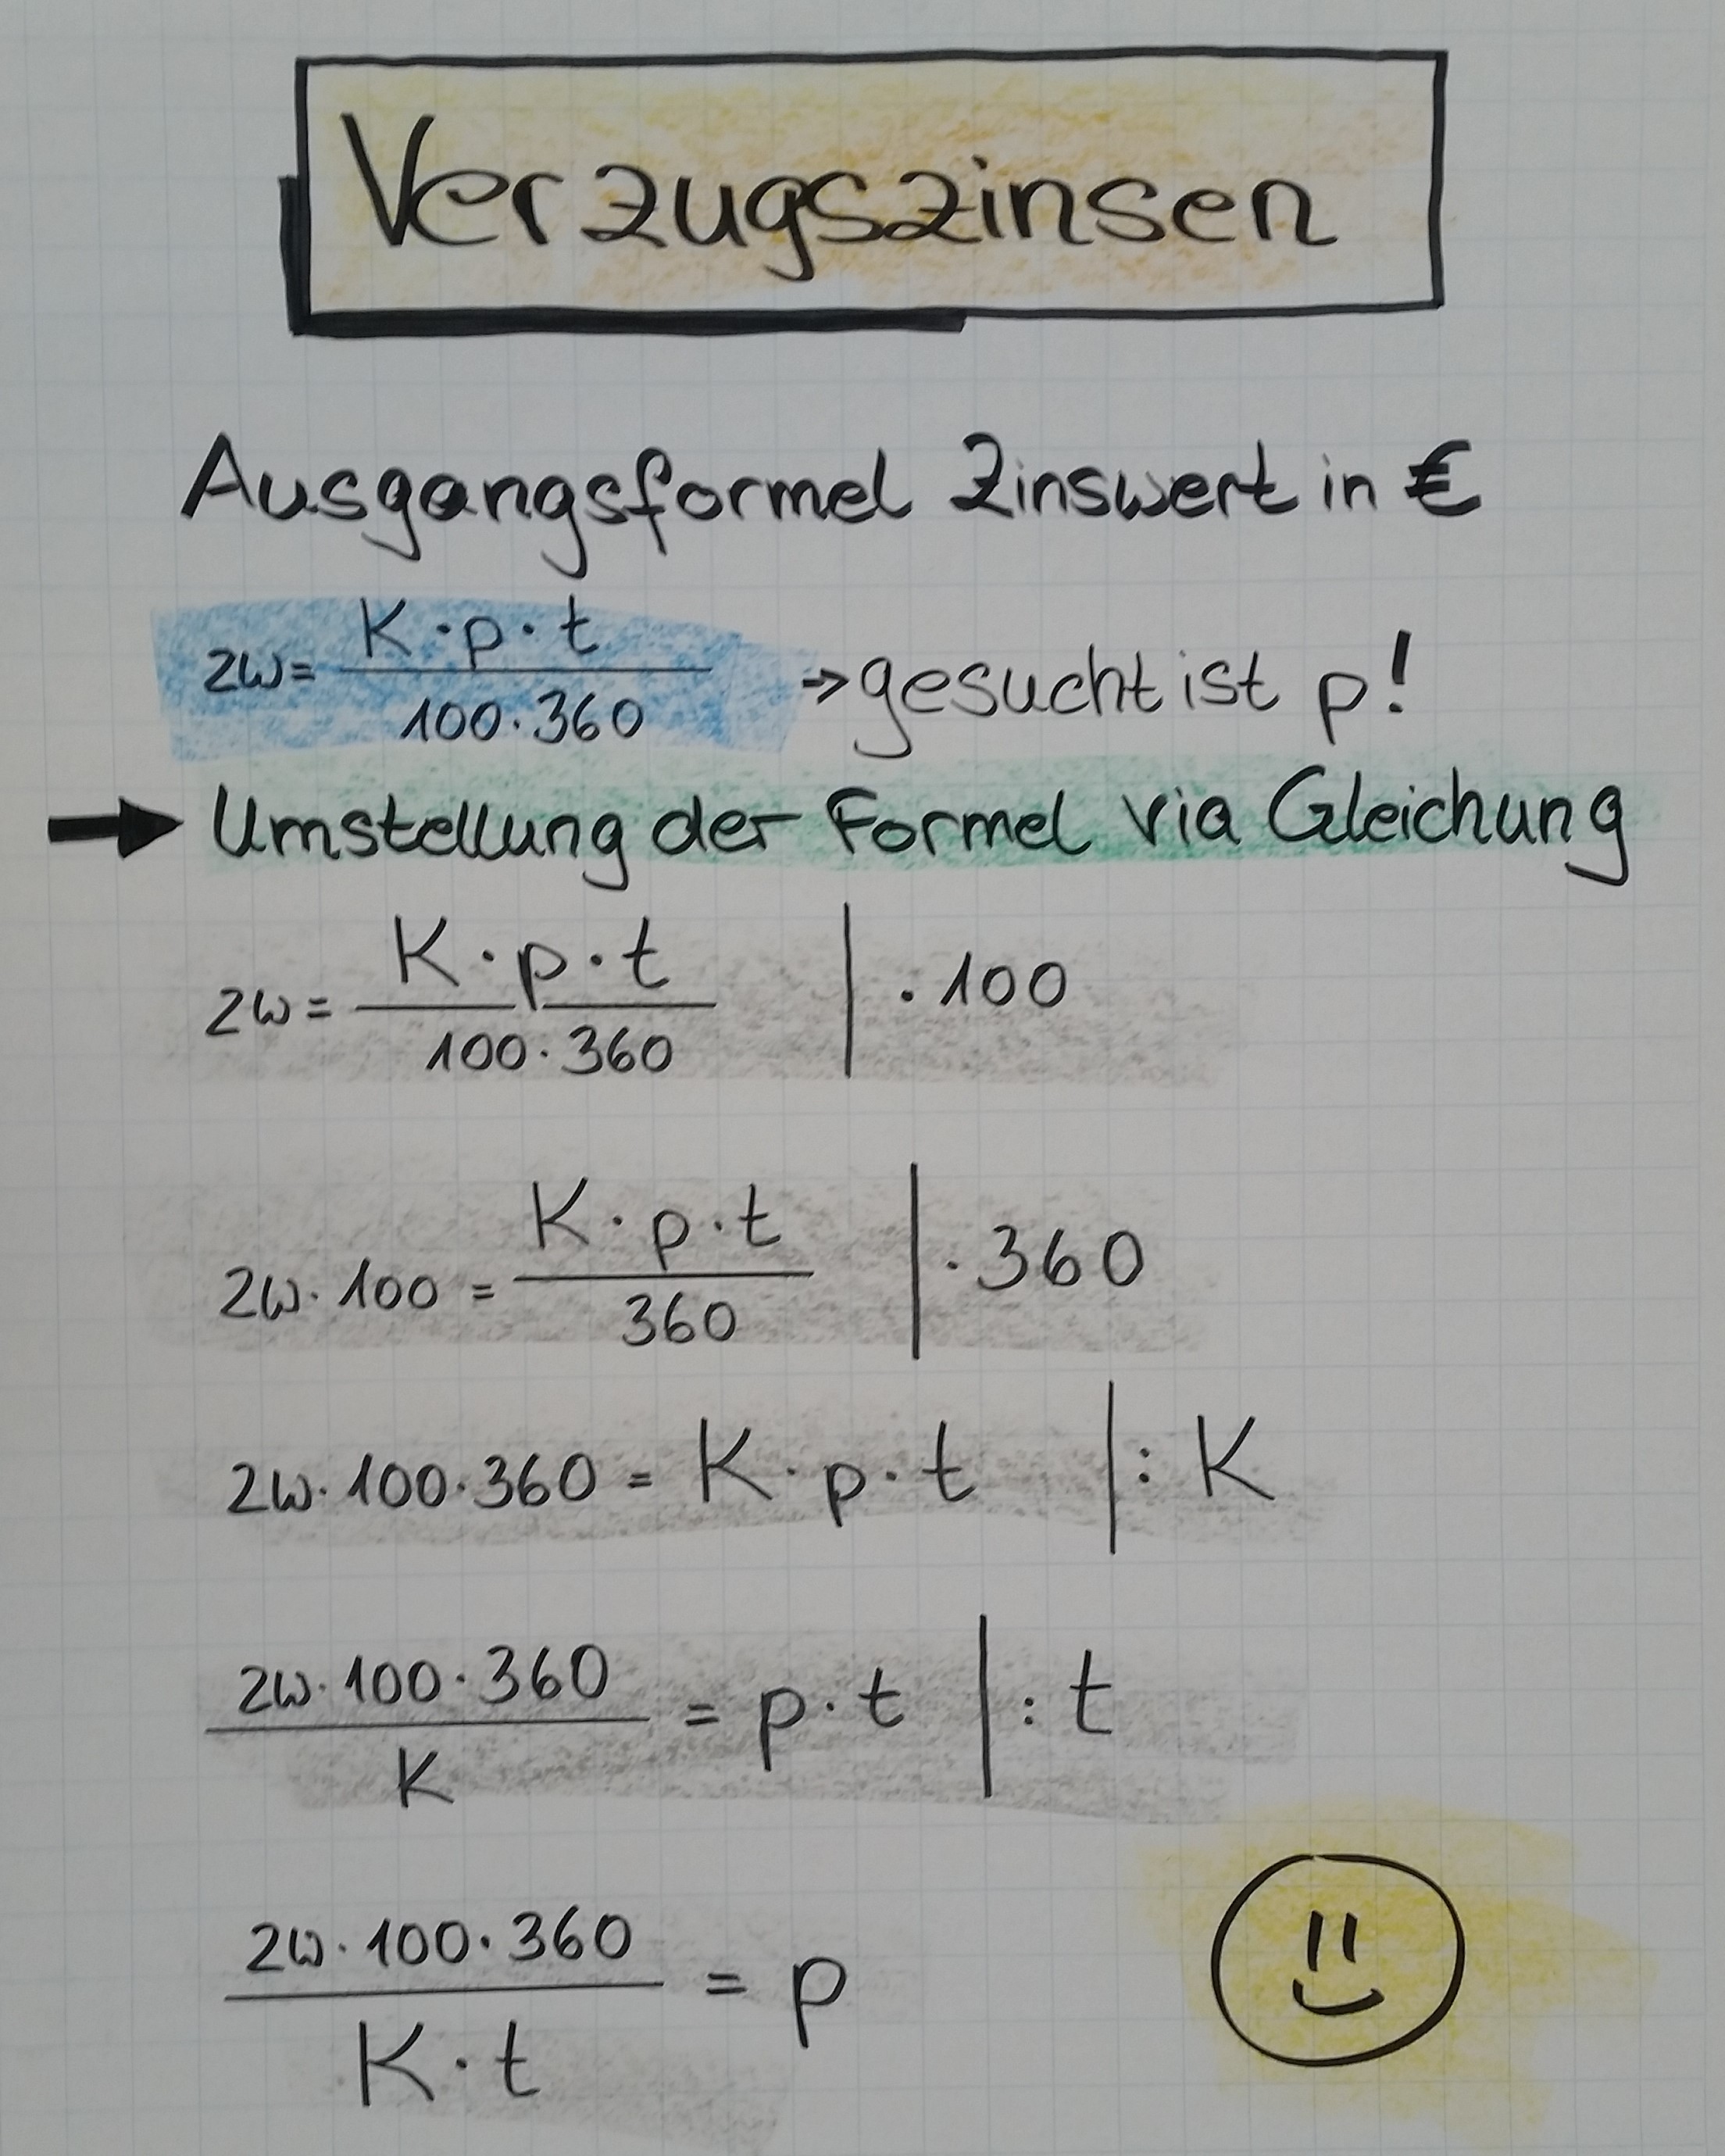 Verzugszinsen
Ausgangsformel Zinswert in €
ZW= K·p·t / 100·360 → gesucht ist p!
→ Umstellung der Formel via Gleichung
ZW= K·p·t / 100·360 | ·100
ZW·100 = K·p·t / 360 | ·360
ZW·100·360 = K·p·t |: K
ZW·100·360 / K = p·t |: t
ZW·100·360 / K·t = p